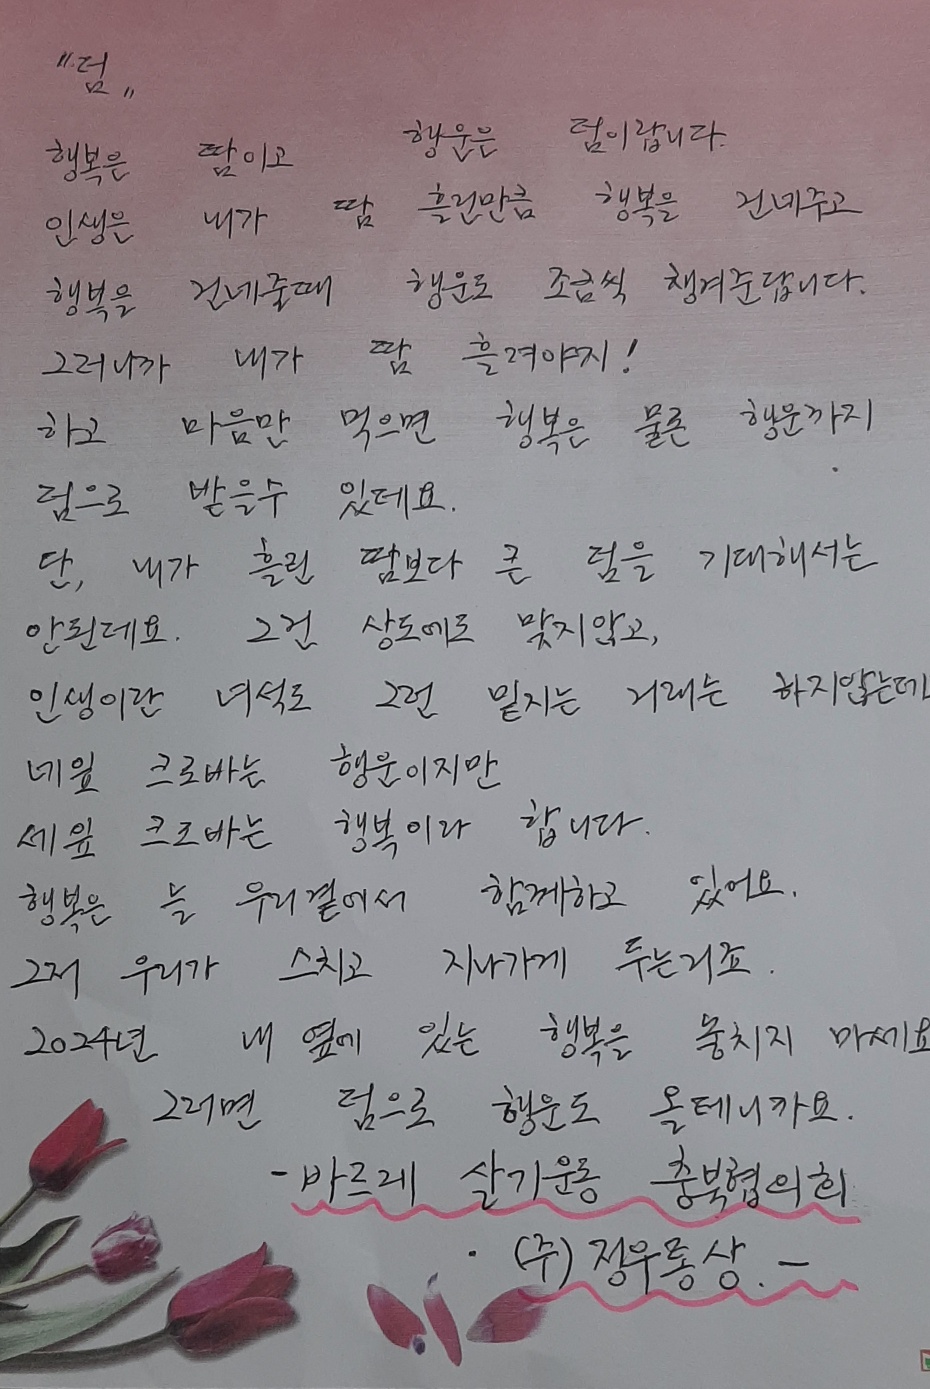 "덤"
행복은 땀이고 행운은 덤이랍니다.
인생은 내가 땀 흘린만큼 행복을 건네주고
행복을 건네줄때 행운도 조금씩 챙겨준답니다.
그러니까 내가 땀 흘려야지!
하고 마음만 먹으면 행복은 물론 행운까지
덤으로 받을수 있데요.
단, 내가 흘린 땀보다 큰 덤을 기대해서는
안된데요. 그건 상도에도 맞지않고,
인생이란 녀석도 그런 밑지는 거래는 하지않는데
네잎 크로바는 행운이지만
세잎 크로바는 행복이라 합니다.
행복은 늘 우리곁에서 함께하고 있어요.
그저 우리가 스치고 지나가게 두는거죠.
2024년 내 옆에 있는 행복을 놓치지 마세요
그러면 덤으로 행운도 올테니까요.
-바르게 살기운동 충북협의회
· (주)정우통상.-